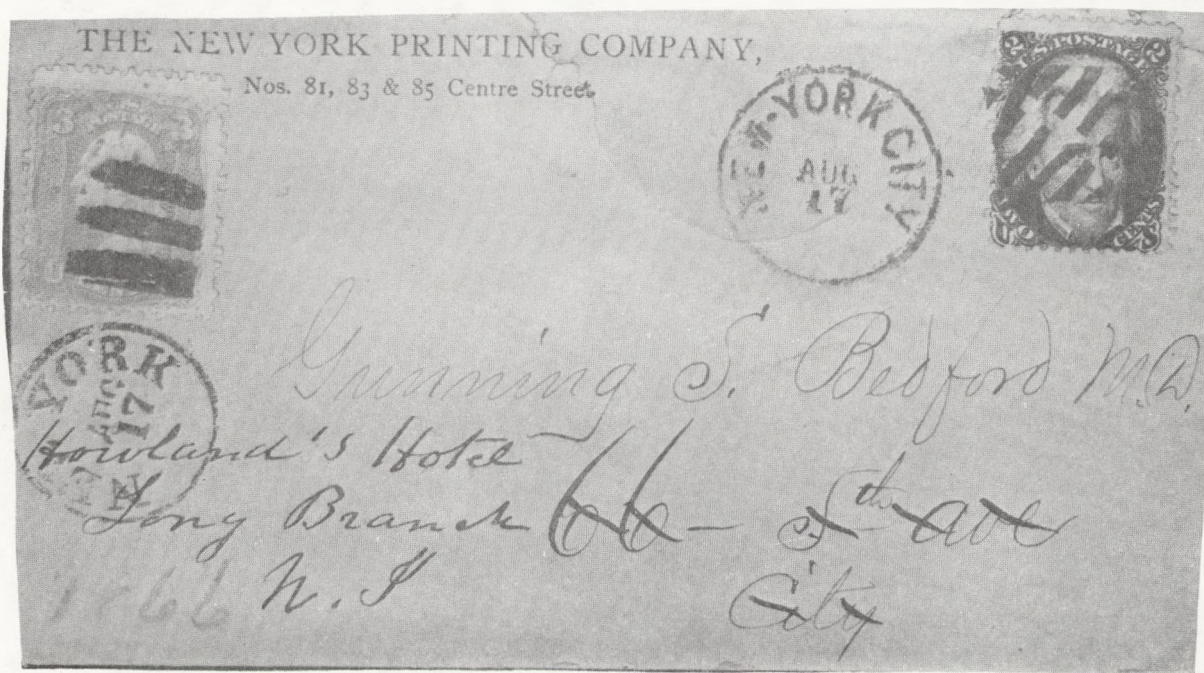 THE NEW YORK PRINTING COMPANY,
Nos. 81, 83 & 85 Centre Street
3 3
NEW-YORK CITY
AUG
17
2 U.S. POSTAGE 2
TWO CENTS
U S
NEW YORK
AUG
17
Gunning S. Bedford M.D.
Howland's Hotel
Long Branch 66 – 5th ave
N. J City
1866